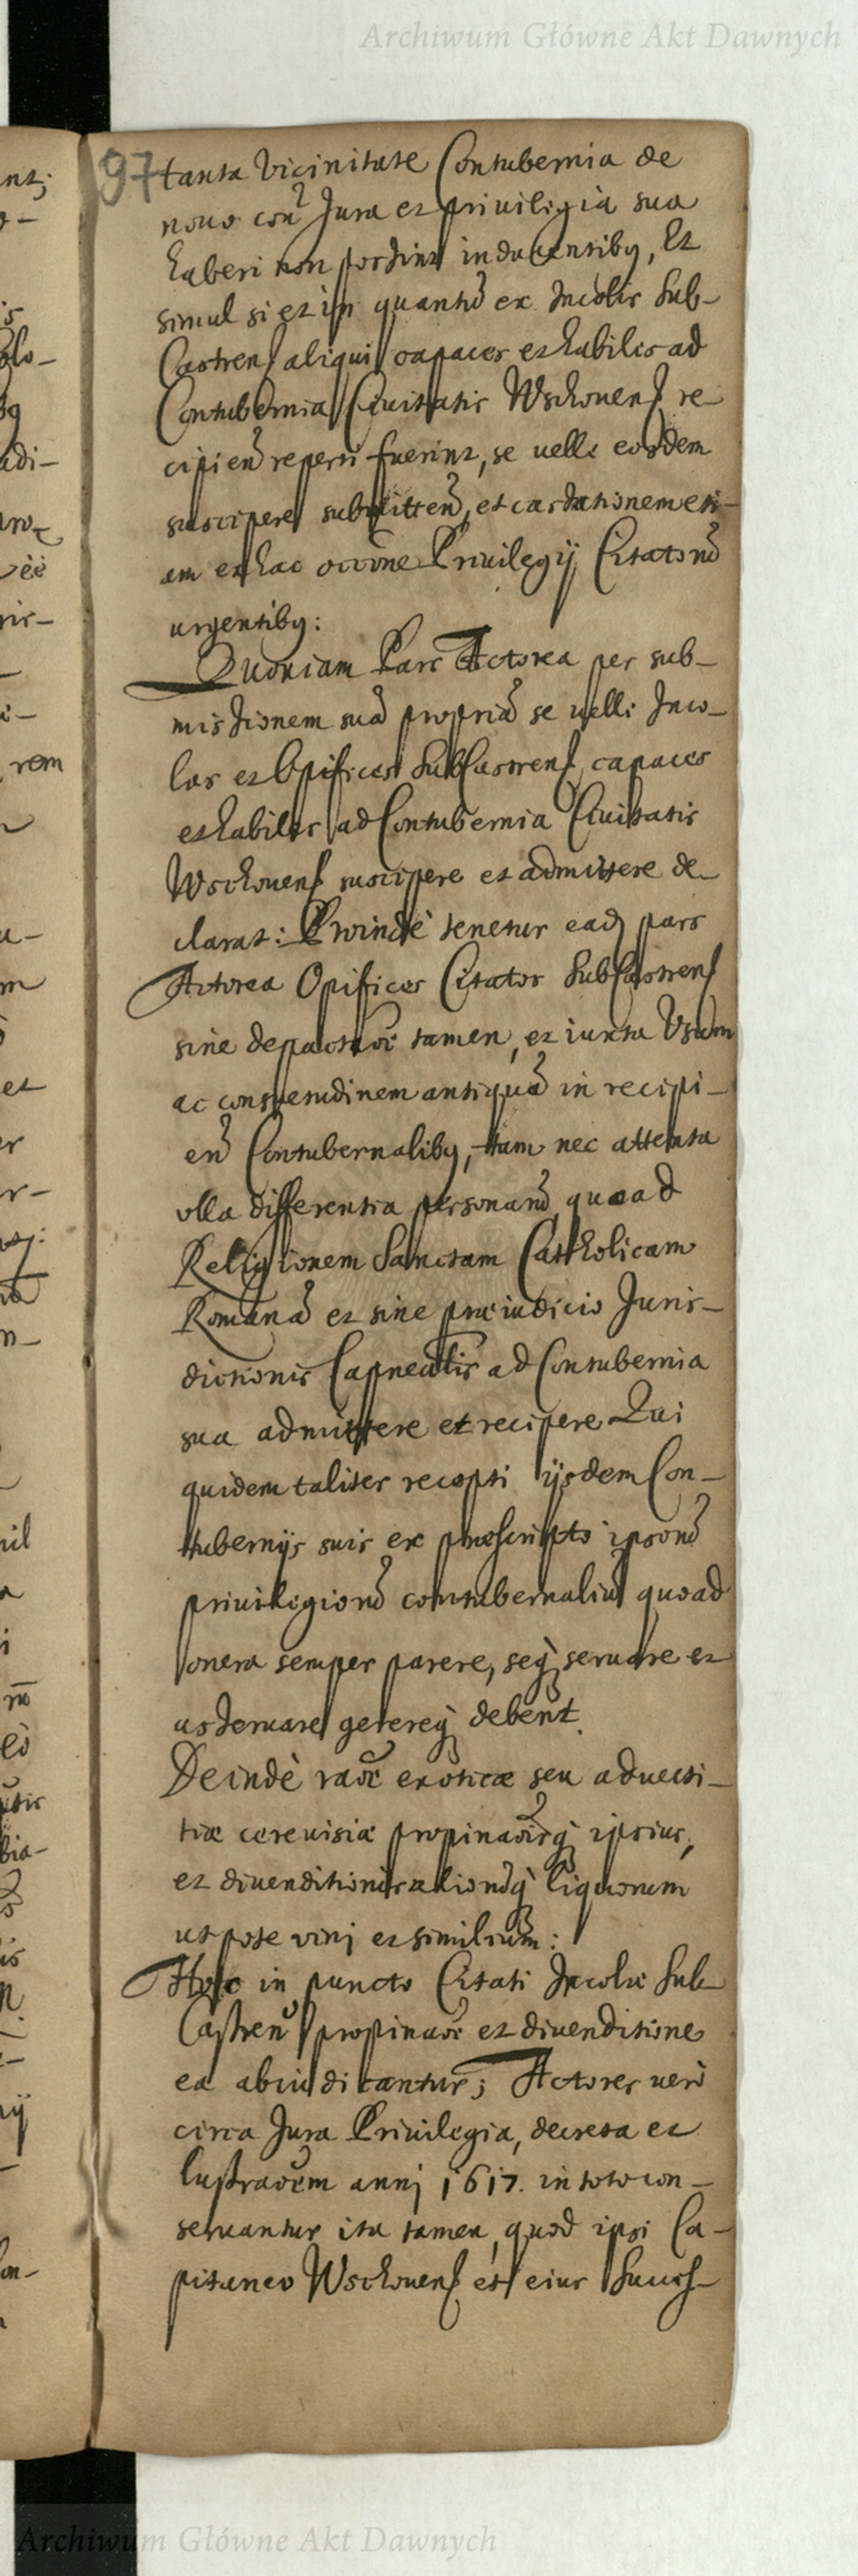 Archiwum Główne Akt Dawnych
97
tanta vicinitate Contubernia de
nouo con Jura et priuilegia sua
haberi non possint inducentibq, Et
simul si et in quantũ ex Incolis Sub-
Castrens aliqui capaces et habiles ad
Contubernia Ciuitatis Wschouens re-
cipien̄ reperti fuerint, se uelle eosdem
suscipere submitten̄, et cassationem eti-
am ex hac occõne Priuilegij Citatorũ
urgentibq:
Quoniam Pars Actorea per sub-
missionem suã propriã se uelle Inco-
las et Opifices SubCastrens capaces
et habiles ad Contubernia Ciuitatis
Wschouens suscipere et admittere de-
clarat: Proindè tenetur eadq pars
Actorea Opifices Citatos SubCastrens
sine depactaõe tamen, et iuxta Vsum
ac consuetudinem antiquã in recipi-
en̄ Contubernalibq, tam nec attenta
vlla differentia personarũ quoad
Religionem Sanctam Catholicam
Romanã et sine præiudicio Juris-
dictionis Capnealis ad Contubernia
sua admittere et recipere Qui
quidem taliter recepti ijsdem Con-
tubernijs suis ex præscripto ipsorũ
priuilegiorũ contubernaliũ quoad
onera semper parere, seq seruare et
asseruare gerereq debent.
Deindè raõe exoticæ seu aduecti-
tiæ cereuisiæ propinaõisq ipsius,
et diuenditionis aliorũq liquorum
utpote vini et similium:
Hoc in puncto Citati Incolæ Sub-
Castren̄ propinaõe et diuenditione
ea abiudicantur; Actores uerò
circa Jura Priuilegia, decreta et
lustraõem anni 1617. in toto con-
seruantur ita tamen, quod ipsi Ca-
pitaneo Wschouens et eius Succes-
Archiwum Główne Akt Dawnych